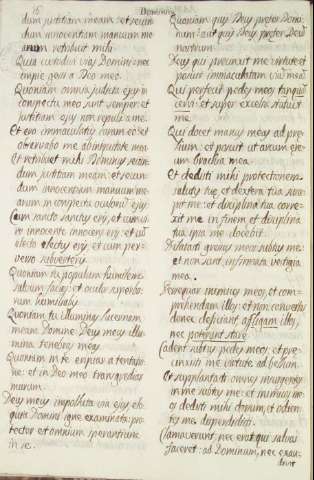 16
Dominica
dum justitiam meam: et secun
dum innocentiam manuum me
arum retribuet mihi
Quia custodivi vias Domini: nec
impie gessi a Deo meo.
Quoniam omnia judicia ejus in
conspectu meo sunt semper: et
justitiam ejus non repuli a me.
Et ero immaculatus coram eo: et
observabo me ab iniquitate mea
Et retribuet mihi Dominus secun
dum justitiam meam: et secun
dum innocentiam manuum me
arum in conspectu oculorum ejus.
Cum sancto sanctus eris, et cum vi
ro innocente innocens eris: et cum
electo electus eris, et cum per-
verso subverteris.
Quoniam tu populum humilem
salvum facies: et oculos superbo-
rum humiliabis
Quoniam tu illuminas lucernam
meam Domine: Deus meus illu
mina tenebras meas
Quoniam in te eripiar a tentatio
ne: et in Deo meo transgrediar
murum.
Deus meus impolluta via ejus, elo-
quia Domini igne examinata: pro-
tector est omnium sperantium
in se.
Quoniam quis Deus præter Domi-
num: aut quis Deus præter Deum
nostrum.
Deus qui præcinxit me virtute: et
posuit immaculatam viam meam
Qui perfecit pedes meos tanquam
cervi: et super excelsa statuit
me.
Qui docet manus meas ad præ-
lium: et posuit ut arcum ære-
um brachia mea.
Et dedisti mihi protectionem
salutis tuæ: et dextera tua susce-
pit me: et disciplina tua corre-
xit me in finem: et disciplina
tua ipsa me docebit
Dilatasti gressus meos subtus me:
et non sunt infirmata vestigia
mea.
Persequar inimicos meos, et com-
prehendam illos: et non convertar
donec deficiant. affligam illos,
nec poterunt stare
Cadent subtus pedes meos: et præ-
cinxisti me virtute ad bellum.
Et supplantasti omnes insurgentes
in me subtus me: et inimicos me-
os dedisti mihi dorsum, et odien-
tes me disperdidisti.
Clamaverunt, nec erat qui salvos
faceret: ad Dominum, nec exau-
divit